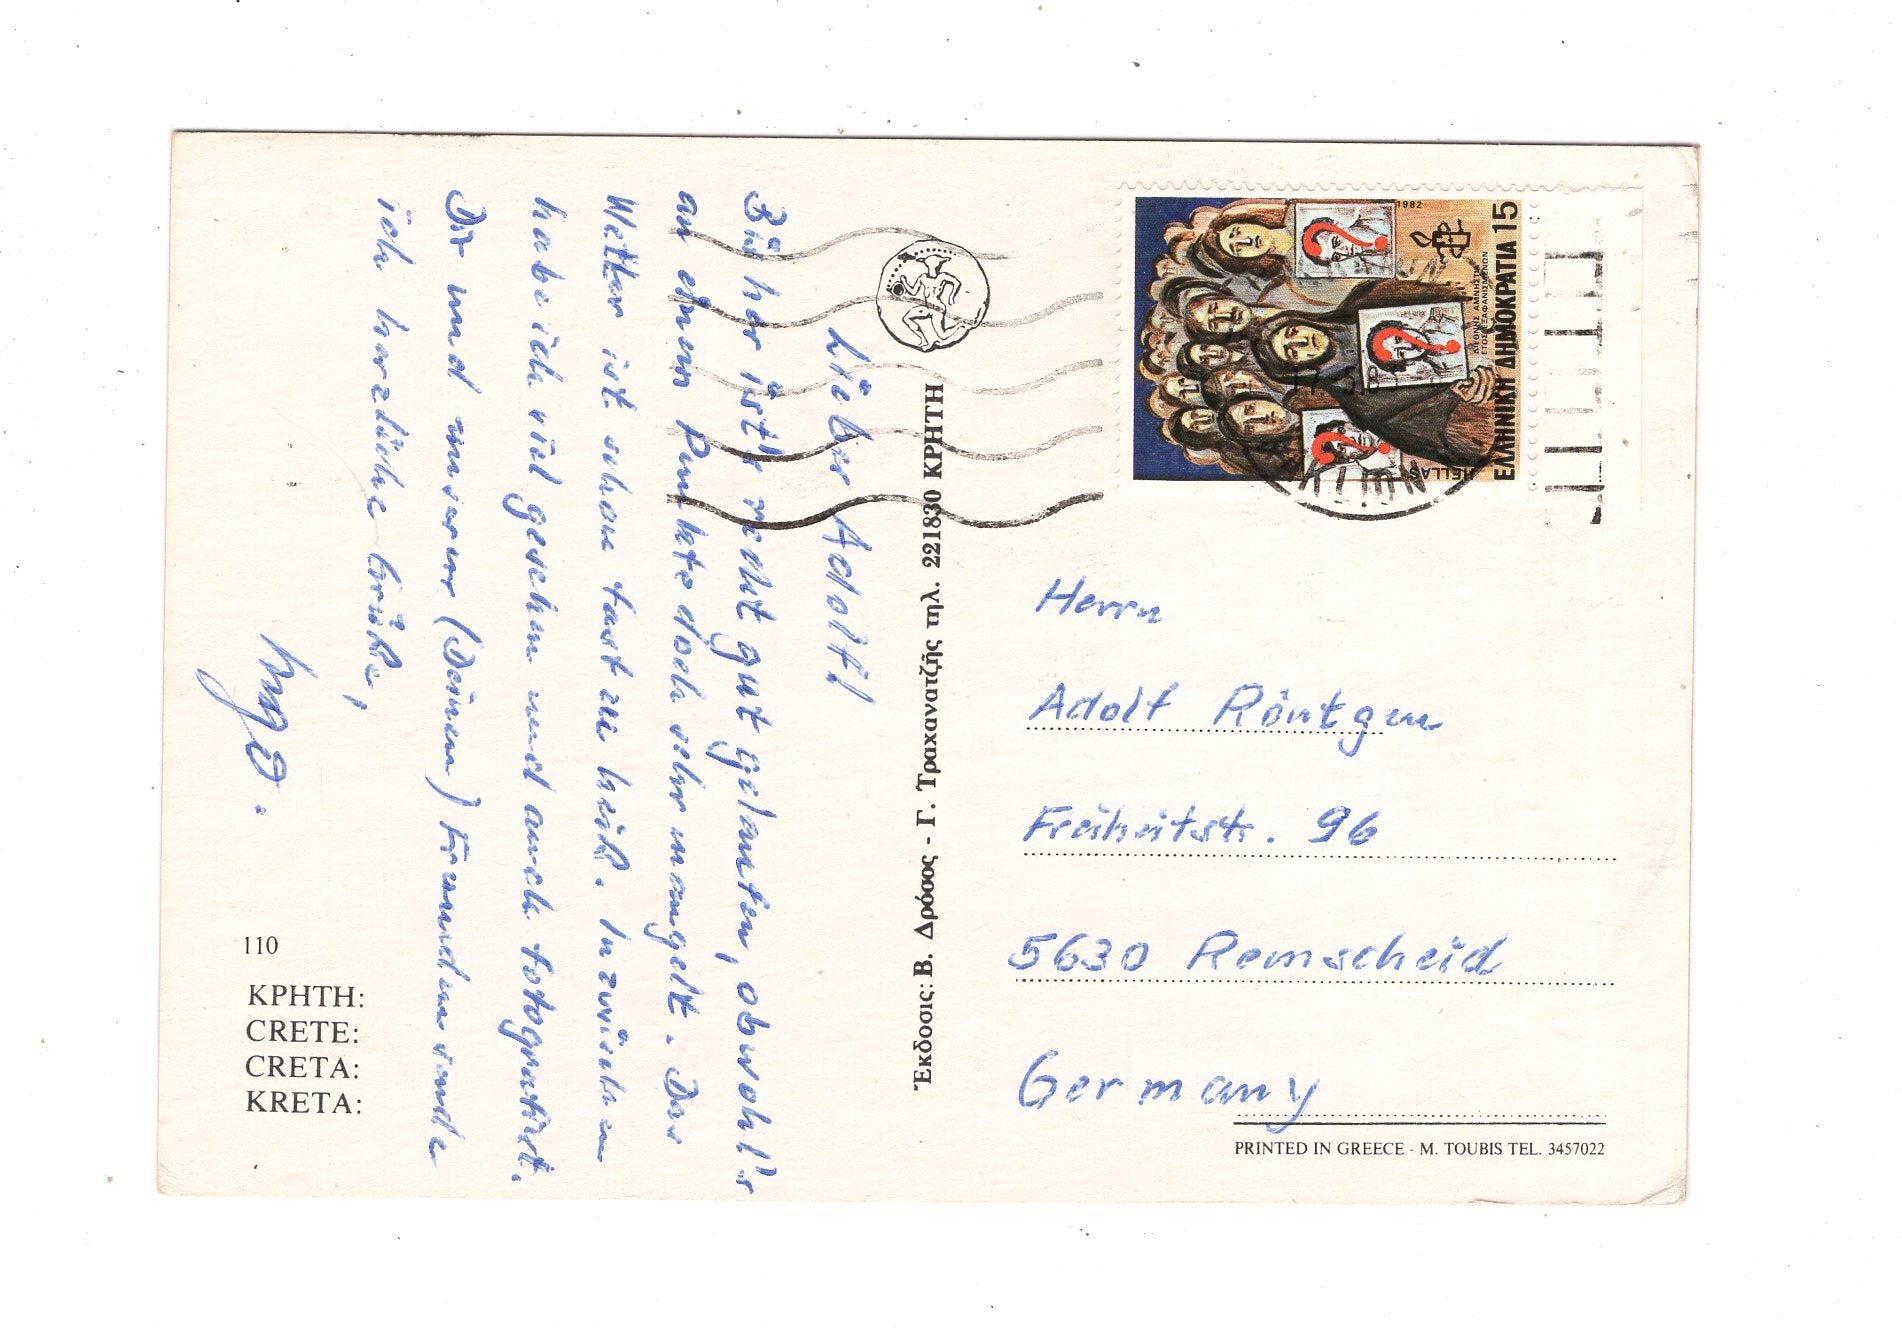 Lieber Adolf!
Bisher ist's recht gut gelaufen, obwohl's
an einem Punkte doch sehr mangelt. Das
Wetter ist schon fast zu heiß. Inzwischen
habe ich viel gesehen und auch fotografiert.
Dir und unserer (Deinen) Freunden sende
ich herzliche Grüße,
Ingo.
110
ΚΡΗΤΗ:
CRETE:
CRETA:
KRETA:
Ἔκδοσις: Β. Δρόσος - Γ. Τραχανατζής τηλ. 221830 ΚΡΗΤΗ
1982
ΕΛΛΗΝΙΚΗ ΔΗΜΟΚΡΑΤΙΑ 15
ΔΙΕΘΝΗΣ ΑΜΝΗΣΤΙΑ
ΕΤΟΣ ΕΞΑΦΑΝΙΣΜΕΝΩΝ
HELLAS
Herrn
Adolf Röntgen
Freiheitstr. 96
5630 Remscheid
Germany
PRINTED IN GREECE · M. TOUBIS TEL. 3457022